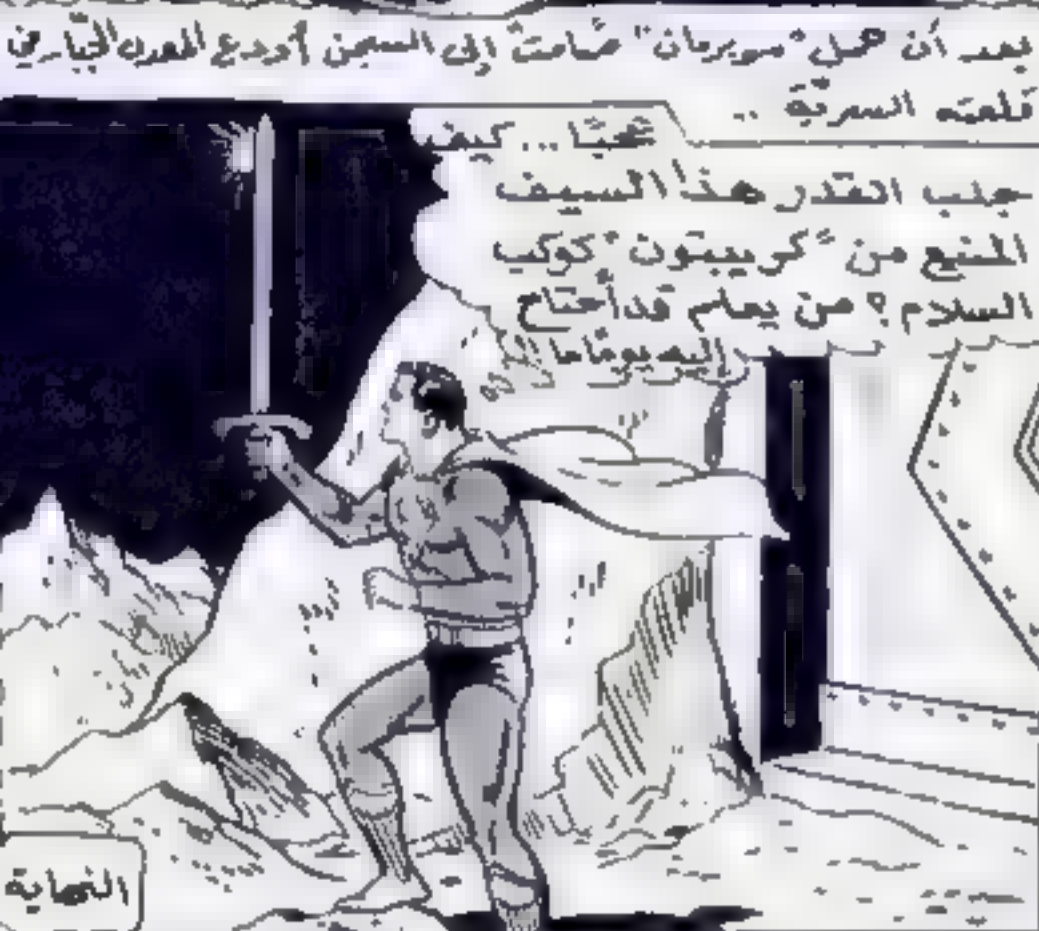 بعد أن حمل "سوبرمان" صامت إلى السجن أودع المعدن الجبّار في
قلعته السريّة ..
عجبًا ... كيف
جلب القدر هذا السيف
المنيع من "كريبتون" كوكب
السلام ؟ من يعلم قد أحتاج
إليه يومًا ما !
النهاية